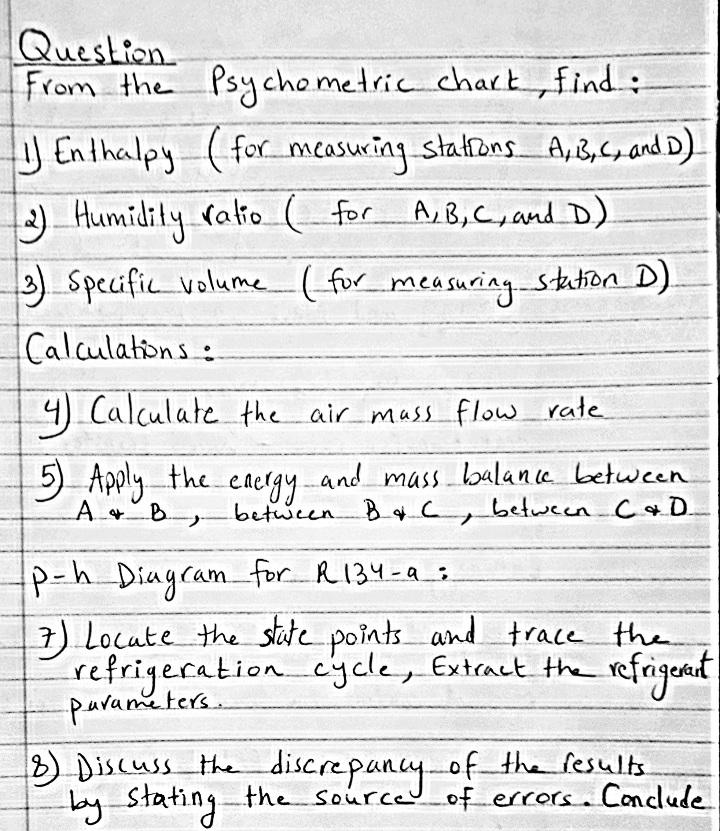 Question
From the Psychometric chart, find :
1) Enthalpy ( for measuring stations A, B, C, and D)
2) Humidity ratio ( for A, B, C, and D)
3) Specific volume ( for measuring station D)
Calculations :
4) Calculate the air mass flow rate
5) Apply the energy and mass balance between
A & B , between B & C , between C & D
P-h Diagram for R134-a :
7) Locate the state points and trace the
refrigeration cycle, Extract the refrigerant
parameters.
8) Discuss the discrepancy of the results
by stating the source of errors. Conclude